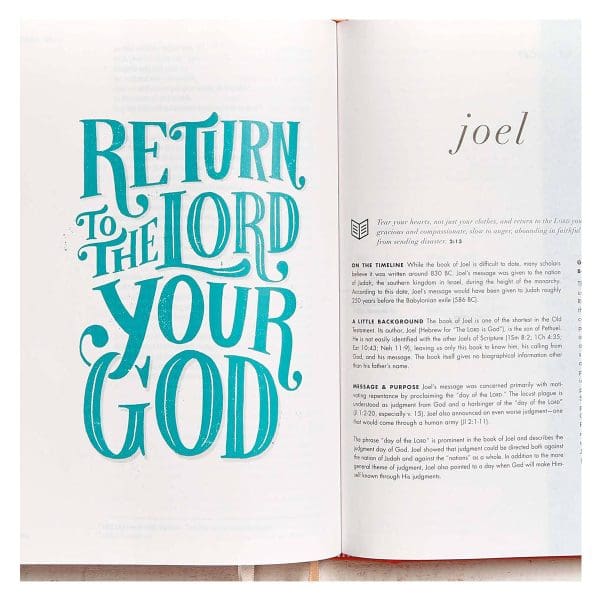 RETURN
TO THE LORD
YOUR
GOD
joel
Tear your hearts, not just your clothes, and return to the LORD
gracious and compassionate, slow to anger, abounding in faithful
from sending disaster. 2:13
ON THE TIMELINE While the book of Joel is difficult to date, many scholars
believe it was written around 830 BC. Joel's message was given to the nation
of Judah, the southern kingdom in Israel, during the height of the monarchy.
According to this date, Joel's message would have been given to Judah roughly
250 years before the Babylonian exile (586 BC).
A LITTLE BACKGROUND The book of Joel is one of the shortest in the Old
Testament. Its author, Joel (Hebrew for "The LORD is God"), is the son of Pethuel.
He is not easily identified with the other Joels of Scripture (1Sm 8:2; 1Ch 4:35;
Ezr 10:43; Neh 11:9), leaving us only this book to know him, his calling from
God, and his message. The book itself gives no biographical information other
than his father's name.
MESSAGE & PURPOSE Joel's message was concerned primarily with moti-
vating repentance by proclaiming the "day of the LORD." The locust plague is
understood as judgment from God and a harbinger of the "day of the LORD"
(Jl 1:2-20, especially v. 15). Joel also announced an even worse judgment—one
that would come through a human army (Jl 2:1-11).
The phrase "day of the LORD" is prominent in the book of Joel and describes the
judgment day of God. Joel showed that judgment could be directed both against
the nation of Judah and against the "nations" as a whole. In addition to the more
general theme of judgment, Joel also pointed to a day when God will make Him-
self known through His judgments.